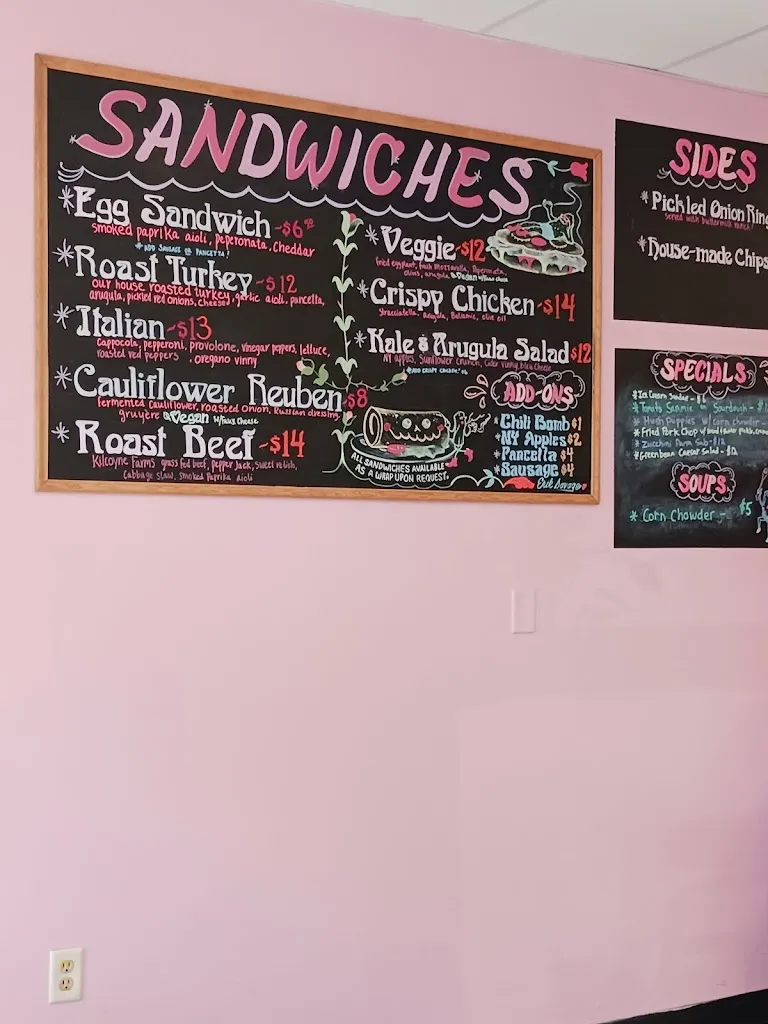 SANDWICHES
*Egg Sandwich -$6.50
smoked paprika aioli, peperonata, cheddar
*ADD SAUSAGE OR PANCETTA!
*Roast Turkey -$12
our house roasted turkey, garlic aioli, pancetta,
arugula, pickled red onions, cheese
*Italian -$13
cappocola, pepperoni, provolone, vinegar peppers, lettuce,
roasted red peppers, oregano vinny
*Cauliflower Reuben $8
fermented cauliflower, roasted onion, Russian dressing,
gruyère *Vegan w/FAUX CHEESE
*Roast Beef -$14
Kilcoyne Farms grass fed beef, pepper jack, sweet relish,
cabbage slaw, smoked paprika aioli
*Veggie -$12
fried eggplant, fresh mozzarella, Peperonata,
arugula *Vegan w/faux cheese
*Crispy Chicken -$14
Stracciatella, arugula, Balsamic, olive oil
*Kale & Arugula Salad $12
NY apples, Sunflower crunch, Cider vinny, bleu cheese
*ADD CRISPY CHICKEN!
ADD-ONS
*Chili Bomb $1
*NY Apples $2
*Pancetta $4
*Sausage $4
ALL SANDWICHES AVAILABLE
AS A WRAP UPON REQUEST.
SIDES
*Pickled Onion Ring
served with buttermilk ranch!
*House-made Chips
SPECIALS
*Ice Cream Sundae -
*Tomato Sammie on Sourdough -
*Hush Puppies w/ corn chowder -
*Fried Pork Chop
*Zucchini Parm Sub -$12
*Green bean Caesar Salad -
SOUPS
*Corn Chowder - $5